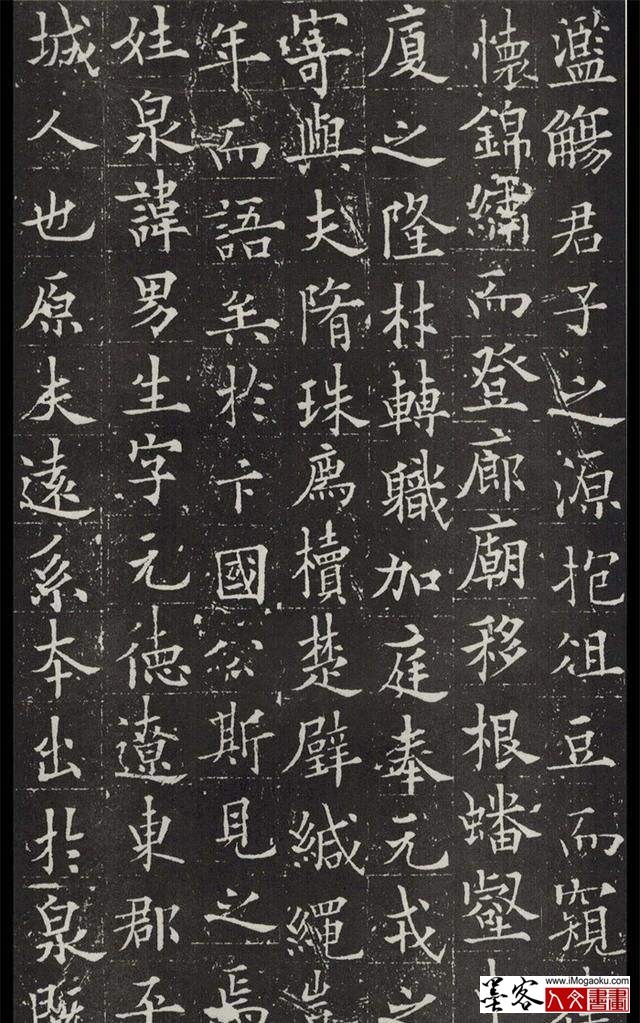 濫觴君子之源抱俎豆而窺
懷錦繡而登廊廟移根蟠壑
廈之隆材轉職加庭奉元戎之
寄與夫隋珠薦櫝楚璧緘繩
年而語矣於卞國公斯見之焉
姓泉諱男生字元德遼東郡平
城人也原夫遠系本出於泉既
墨客
www.iMogaoku.com
人文書畫